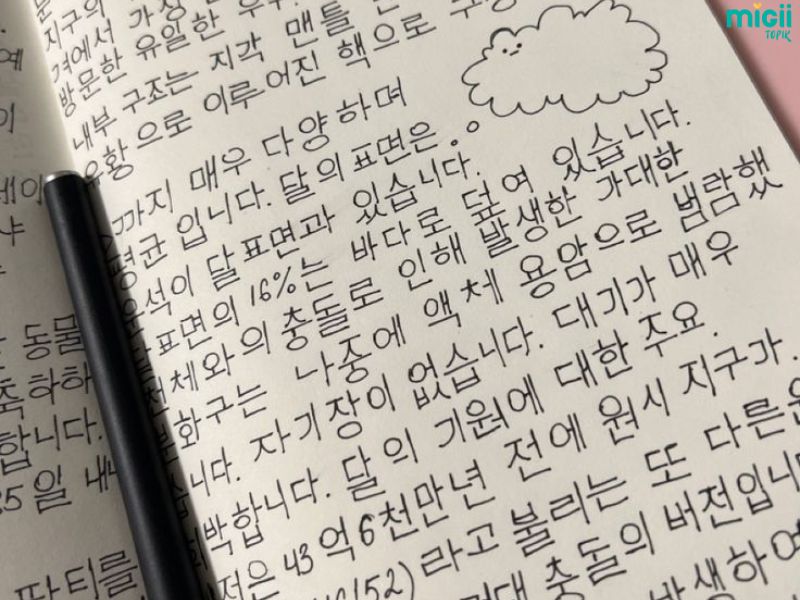 migii
TOPIK
지구의 가장
겨에서
방문한 유일한
내부 구조는 지각 맨틀
유황으로 이루어진 핵으로
까지 매우 다양하며
평균입니다. 달의 표면은
운석이 달 표면과 있습니다.
달 표면의 16%는 바다로 덮여 있습니다.
천체와의 충돌로 인해 발생한 가대한
화구는 나중에 액체 용암으로 범람했
습니다. 자기장이 없습니다. 대기가 매우
박합니다. 달의 기원에 대한 주요.
은 43억 6천만년 전에 원시 지구가.
라고 불리는 또 다른
충돌의 버전입니
발생하여
예
이
세이
냐
동물
축하하
합니다.
25일 내
파티를